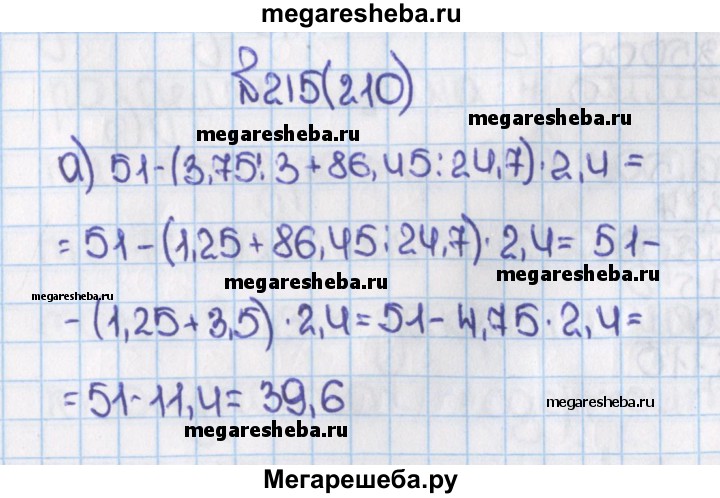 megaresheba.ru
№215(210)
megaresheba.ru
megaresheba.ru
а) 51-(3,75:3+86,45:24,7)·2,4=
=51-(1,25+86,45:24,7)·2,4= 51-
megaresheba.ru
megaresheba.ru
megaresheba.ru
-(1,25+3,5)·2,4=51-4,75·2,4=
=51-11,4= 39,6
megaresheba.ru
megaresheba.ru
Мегарешеба.ру